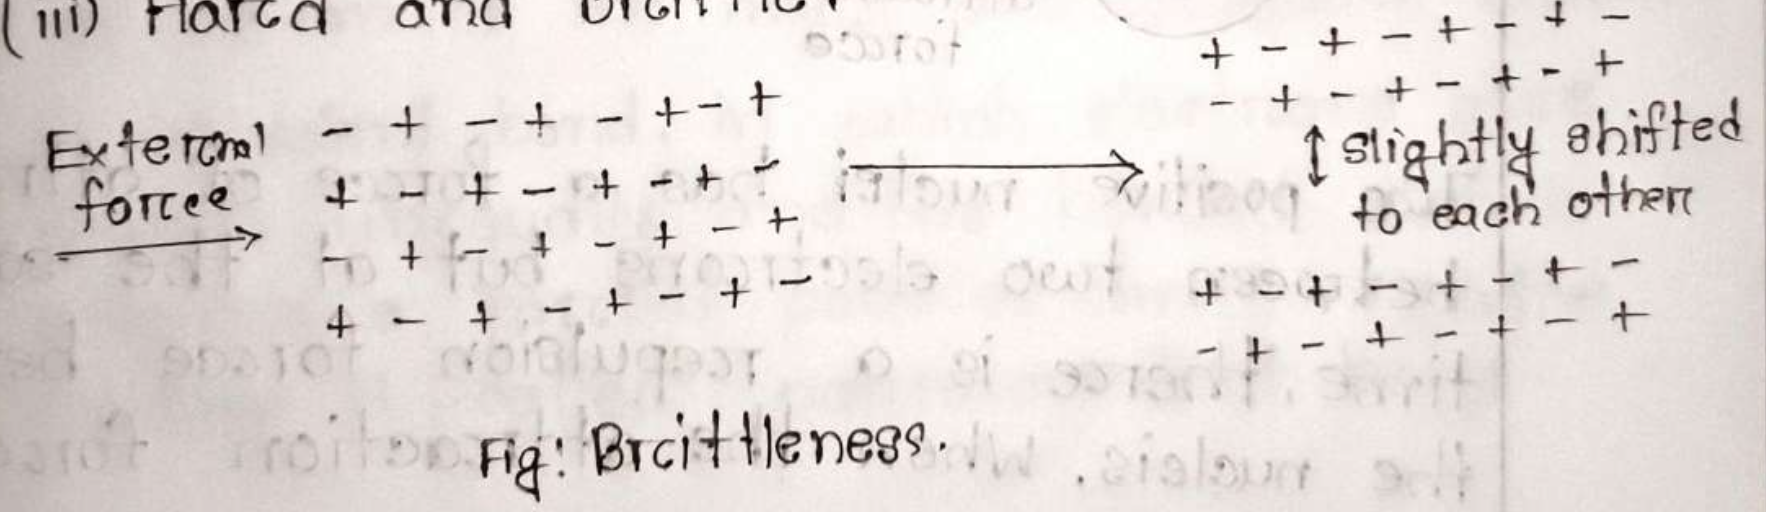 (iii) Harcd and
+ - + - + - + -
- + - + - + - +
External
force
- + - + - + - +
+ - + - + - + -
- + - + - + - +
+ - + - + - + -
slightly shifted
to each other
+ - + - + - + -
- + - + - + - +
Fig: Brcittleness.